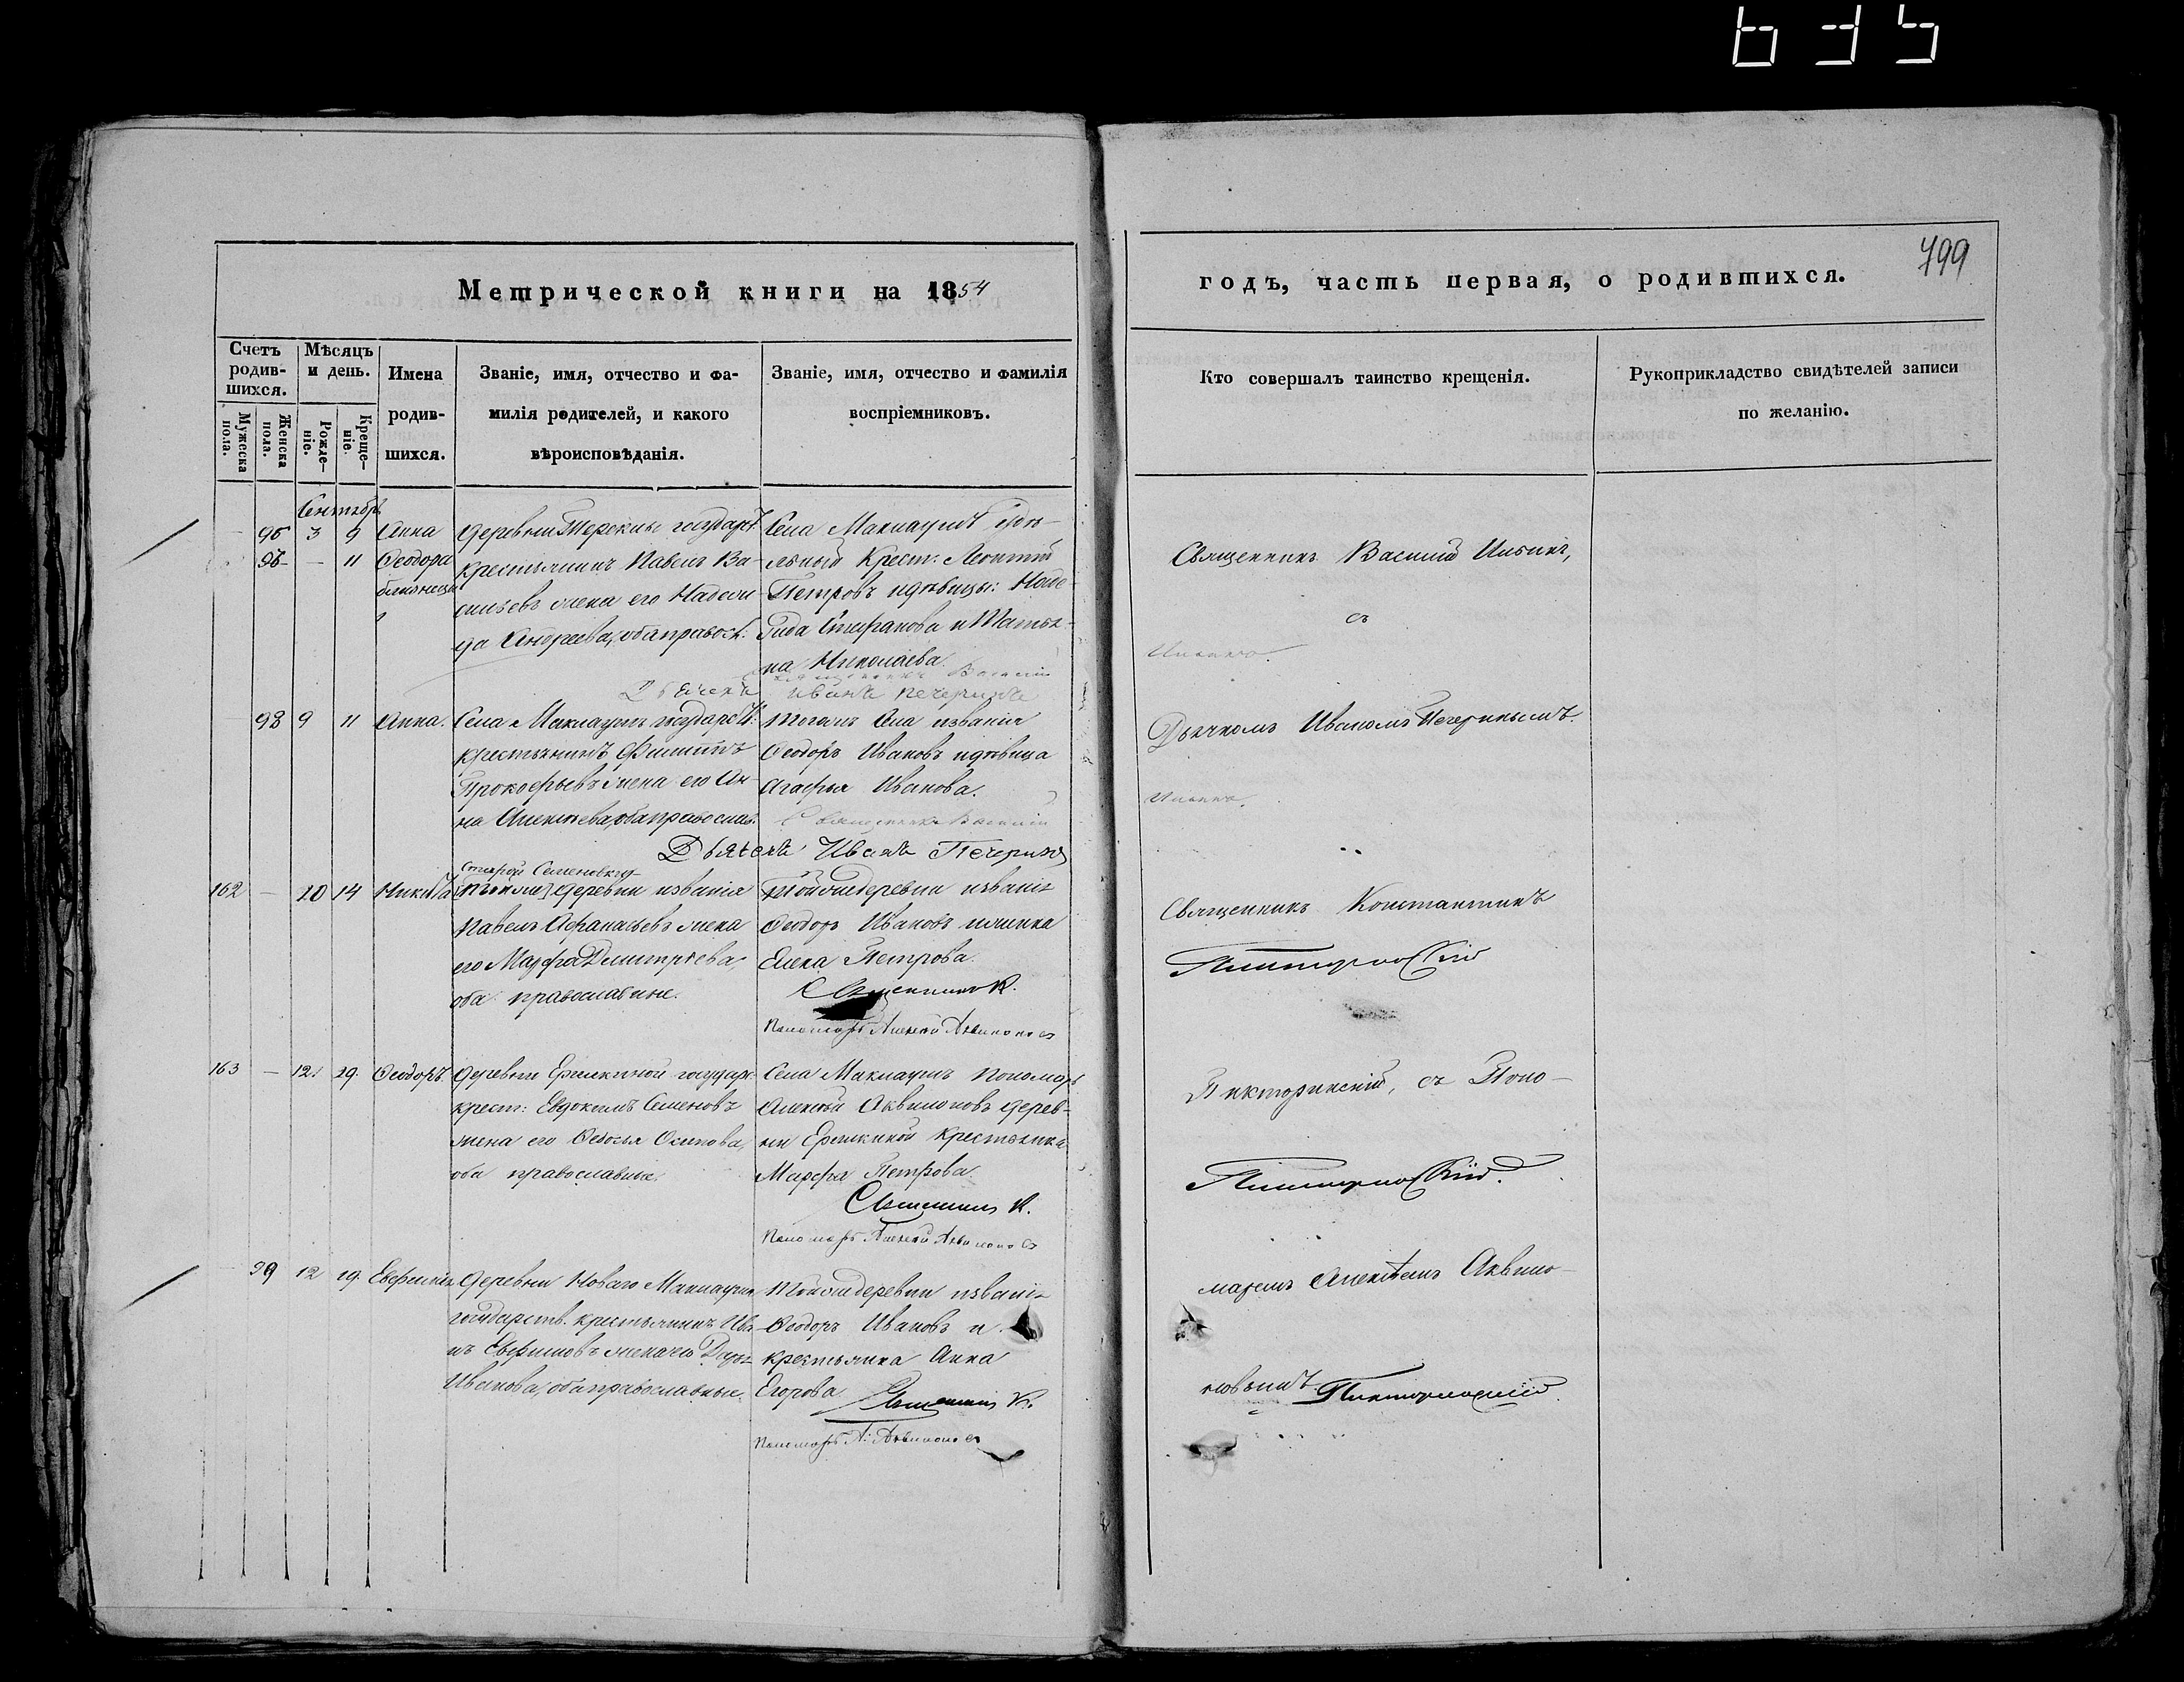 635
799
Метрической книги на 1854
годъ, часть первая, о родившихся.
Счетъ родив-шихся.
Мужеска пола.
Женска пола.
Мѣсяцъ и день.
Рожде-ніе.
Креще-ніе.
Имена
родив-
шихся.
Званіе, имя, отчество и фа-
милія родителей, и какого
вѣроисповѣданія.
Званіе, имя, отчество и фамилія
воспріемниковъ.
Кто совершалъ таинство крещенія.
Рукоприкладство свидѣтелей записи
по желанію.
Сентябрь
96 3 9 Анна
— 11 Ѳеодора
близнецы
деревни государст.
крестьянинъ Павелъ Ва-
сильевъ жена его Надеж
да Андреева, оба правосл.
Села Маклаушъ удѣ-
льный Крест: Леонтій
Петровъ и дѣвицы:
Стефанова и Татья-
на Николаева.
Дьячекъ Иванъ Печеринъ
Священникъ Василій Ильинъ,
съ
98 9 11 Анна.
Села Маклаушъ государст.
крестьянинъ Филиппъ
Прокофьевъ жена его Ан-
на Алексѣева, оба православ.
тогожъ села званія
Ѳеодоръ Ивановъ и дѣвица
Агафья Иванова.
Священникъ Василій
Дьячекъ Иванъ Печеринъ
Дьячкомъ Иваномъ Печеринымъ.
Ильинъ.
162 — 10 14 Никита
Старой Семеновки
деревни званія
Павелъ Афанасьевъ жена
его Марфа Димитріева,
оба православные.
Тойже деревни званія
Ѳеодоръ Ивановъ
Елена Петрова.
Священникъ К.
Пономарь Алексѣй Аквилоновъ
Священникъ Константинъ
163 — 12. 19. Ѳеодоръ.
деревни Ермкиной государс.
крест: Евдокимъ Семеновъ
жена его Ѳедосья Осипова,
оба православные.
Села Маклаушъ Пономарь
Алексѣй Аквилоновъ дерев-
ни Ермкиной крестьянка
Марфа Петрова
Священникъ К.
Пономарь Алексѣй Аквилоновъ
съ Поно-
99 12 19. Евфимія
деревни Новаго Маклауша
государств. крестьянинъ Ива-
нъ Евфимовъ жена его Дарья
Иванова, оба православные.
Тойже деревни званія
Ѳеодоръ Ивановъ и
крестьянка Анна
Егорова
Священникъ К.
Пономарь А. Аквилоновъ
маремъ Алексѣемъ Аквило-
новымъ